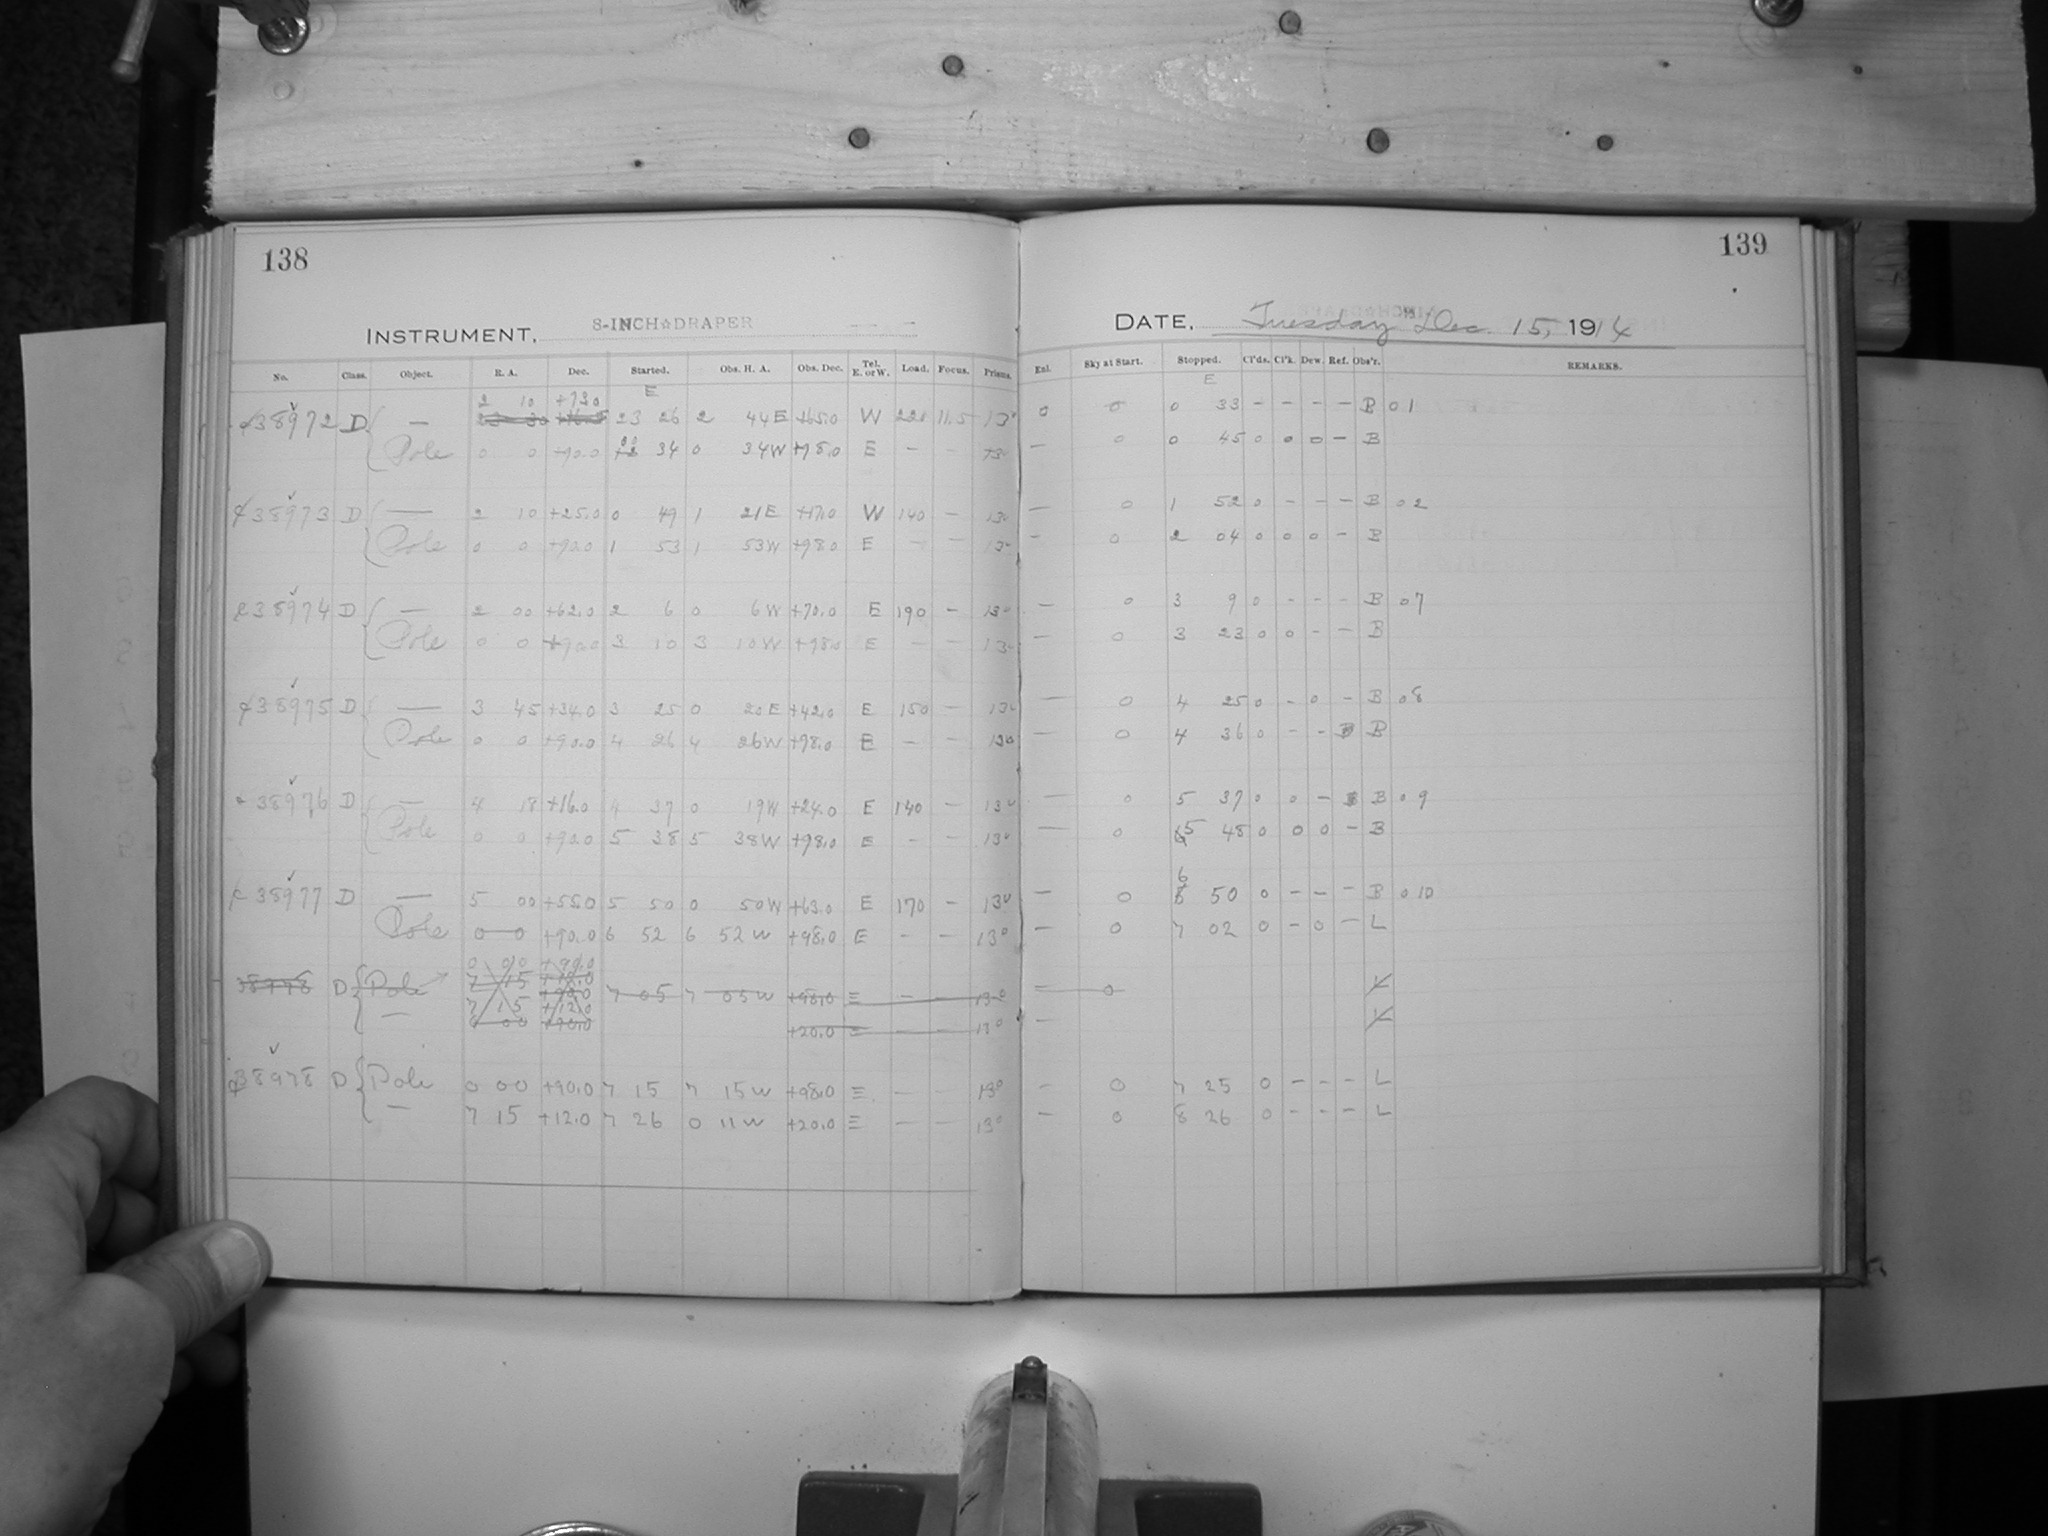 138
INSTRUMENT, 8-INCH☆DRAPER
No. Class. Object. R. A. Dec. Started. Obs. H. A. Obs. Dec. Tel. E. or W. Load. Focus. Prisms.
E
2 10 +73.0
38972 D — 23 26 2 44E +65.0 W 220 11.5 13°
Pole 0 0 +90.0 34 0 34W +98.0 E — — 13°
38973 D — 2 10 +25.0 0 49 1 21E +17.0 W 140 — 13°
Pole 0 0 +90.0 1 53 1 53W +98.0 E — — 13°
38974 D — 2 00 +62.0 2 6 0 6W +70.0 E 190 — 13°
Pole 0 0 +90.0 3 10 3 10W +98.0 E — — 13°
38975 D — 3 45 +34.0 3 25 0 20E +42.0 E 150 — 13°
Pole 0 0 +90.0 4 26 4 26W +98.0 E — — 13°
38976 D — 4 18 +16.0 4 37 0 19W +24.0 E 140 — 13°
Pole 0 0 +90.0 5 38 5 38W +98.0 E — — 13°
38977 D — 5 00 +55.0 5 50 0 50W +63.0 E 170 — 13°
Pole 0 0 +90.0 6 52 6 52W +98.0 E — — 13°
0 00 +90.0
38978 D Pole 7 15 7 05 7 05W +98.0 E — — 13°
— 7 15 +12.0
0 00 +90.0 +20.0 E — — 13°
38978 D Pole 0 00 +90.0 7 15 7 15W +98.0 E — — 13°
— 7 15 +12.0 7 26 0 11W +20.0 E — — 13°
139
DATE, Tuesday Dec. 15, 1914
Enl. Sky at Start. Stopped. Cl'ds. Cl'k. Dew. Ref. Obs'r. REMARKS.
E
0 0 0 33 — — — — B 01
— 0 0 45 0 0 0 — B
— 0 1 52 0 — — — B 02
— 0 2 04 0 0 0 — B
— 0 3 9 0 — — — B 07
— 0 3 23 0 0 — — B
— 0 4 25 0 — 0 — B 08
— 0 4 36 0 — — B
— 0 5 37 0 0 — B 09
— 0 5 48 0 0 0 — B
— 0 6 50 0 — — — B 010
— 0 7 02 0 — 0 — L
— 0 L
— L
— 0 7 25 0 — — — L
— 0 8 26 0 — — — L